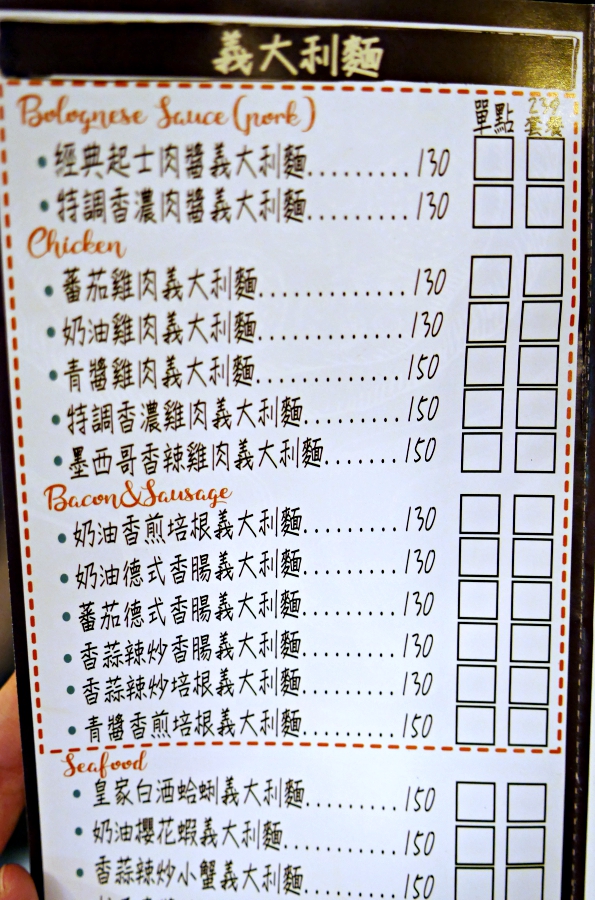 義大利麵
Bolognese Sauce (pork) 單點 239套餐
經典起士肉醬義大利麵.........130
特調香濃肉醬義大利麵.........130
Chicken
蕃茄雞肉義大利麵.............130
奶油雞肉義大利麵.............130
青醬雞肉義大利麵.............150
特調香濃雞肉義大利麵.........150
墨西哥香辣雞肉義大利麵.......150
Bacon&Sausage
奶油香煎培根義大利麵.........130
奶油德式香腸義大利麵.........130
蕃茄德式香腸義大利麵.........130
香蒜辣炒香腸義大利麵.........130
香蒜辣炒培根義大利麵.........130
青醬香煎培根義大利麵.........150
Seafood
皇家白酒蛤蜊義大利麵.........150
奶油櫻花蝦義大利麵...........150
香蒜辣炒小蟹義大利麵.........150